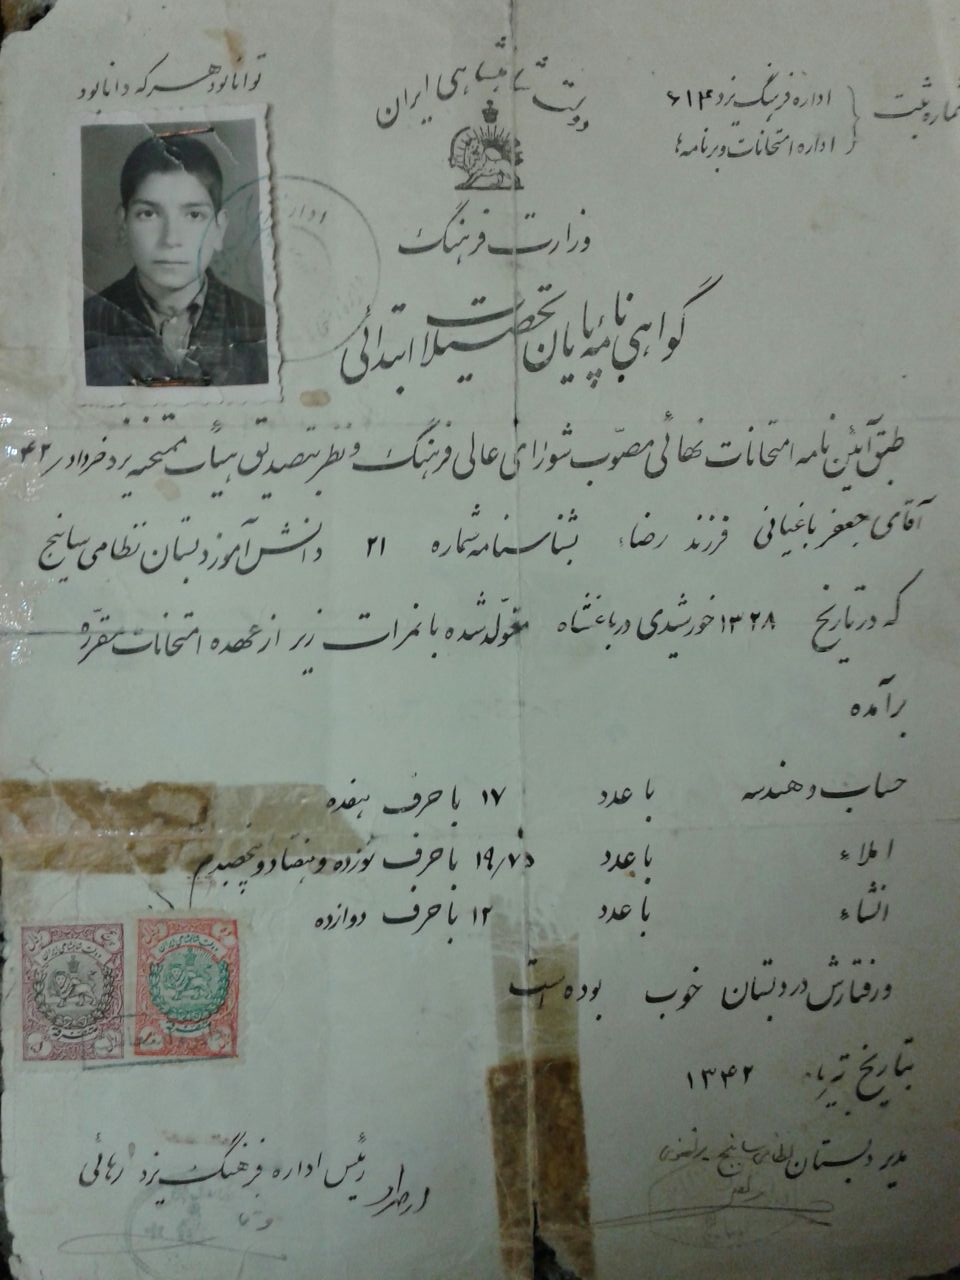 شماره ثبت
اداره فرهنگ یزد ۶۱۴
اداره امتحانات و برنامه‌ها
دولت شاهنشاهی ایران
توانا بود هر که دانا بود
وزارت فرهنگ
گواهی نامهٔ پایان تحصیلات ابتدائی
طبق آئین نامه امتحانات نهائی مصوّب شورای عالی فرهنگ و نظر بتصدیق هیأت ممتحنه یزد خرداد ۴۲
آقای جعفر باغیانی فرزند رضا بشناسنامه شماره ۲۱ دانش آموز دبستان نظامی سانیج
که در تاریخ ۱۳۲۸ خورشیدی در متولد شده با نمرات زیر از عهده امتحانات مقرّره
برآمده
حساب و هندسه با عدد ۱۷ با حرف هفده
املاء با عدد ۱۹/۷۵ با حرف نوزده و هفتاد و پنجصدم
انشاء با عدد ۱۲ با حرف دوازده
و رفتارش در دبستان خوب بوده است
بتاریخ تیرماه ۱۳۴۲
مدیر دبستان نظامی سانیج
رئیس اداره فرهنگ یزد رهائی